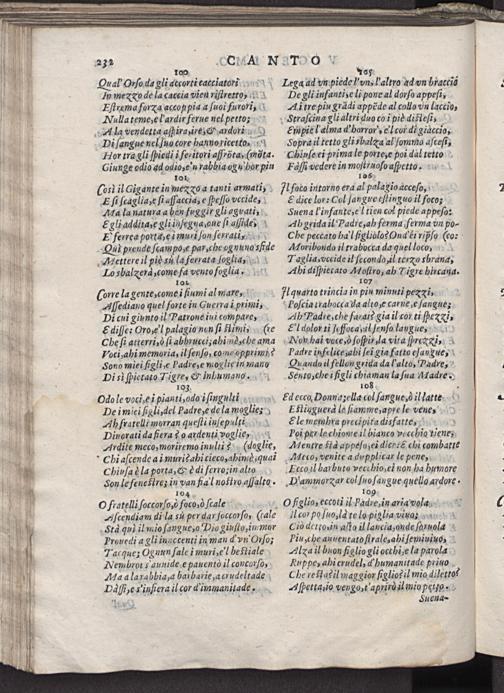 232
CANTO
100
Qual' Orso da gli accorti cacciatori
In mezzo de la caccia vien ristretto,
Estrema forza accoppia a suoi furori,
Nulla teme, e l'ardir ferue nel petto;
A la vendetta aspira, ire, & ardori
Di sangue nel suo core hanno ricetto.
Hor tra gli spiedi i feritori affrōta, (mōta.
Giunge odio ad odio, e'n rabbia ogn'hor piu
101
Così il Gigante in mezzo a tanti armati,
E si scaglia, e si affaccia, e spesso vccide,
Ma la natura a ben fuggir gli aguati,
Egli addita, e gli insegna, oue si asside,
E' ferrea porta, e i muri son serrati,
Quì prende scampo, e par, che ognuno sfide
Mettere il piè sù la ferrata soglia,
Lo sbalzerà, come fa vento foglia.
102
Corre la gente, come i fiumi al mare,
Assediano quel forte in Guerra i primi,
Di cui giunto il Patrone iui compare,
E disse: Oro, e'l palagio non si stimi, (re
Che si atterri, ò si abbrucci, ahi mè, che ama
Voci, ahi memoria, il senso, come opprimi?
Sono miei figli, e Padre, e moglie in mano
Di sì spietato Tigre, & inhumano.
103
Odo le voci, e i pianti, odo i singulti
De i miei figli, del Padre, e de la moglie;
Ah fratelli morran questi insepulti
Diuorati da fiera? o ardenti voglie,
Ardite meco, moriremo inulti? (doglie,
Chi ascende a i muri? ahi cieco, ahimè, quai
Chiusa è la porta, & è di ferro; in alto
Son le fenestre; in van fia'l nostro assalto.
104
O fratelli soccorso, ò foco, ò scale
Ascendiam di la sù per dar soccorso, (cale
Stà quì il mio sangue, o Dio giusto, in mor
Prouedi a gli innocenti in man d'vn' Orso;
Tacque; Ognun sale i muri, e'l bestiale
Nembrot s'auuide, e pauentò il concorso,
Ma a la rabbia, a barbarie, a crudeltade
Dàssi, e s'insiera il cor d'immanitade.
Qual'
105
Lega ad vn piede l'vn, l'altro ad vn braccio
De gli infanti, e li pone al dorso appesi,
Ai tre piu grādi appēde al collo vn laccio,
Strascina gli altri duo co i piè distesi,
Empie l'alma d'horror', e'l cor di giaccio,
Sopra il tetto gli sbalza al sommo ascesi,
Chiuse ei prima le porte, e poi dal tetto
Fassi vedere in mostruoso aspetto.
106
Il foco intorno era al palagio acceso,
E dice lor: Col sangue estinguo il foco;
Suena l'infante, e l tien col piede appeso:
Ab grida il Padre, ah ferma ferma vn po-
Che peccato ha'l figliolo? Ond' ei riso (co:
Moribondo il trabocca da quel loco,
Taglia, vccide il secondo, il terzo sbrana,
Ahi dispietato Mostro, ah Tigre hircana.
107
Il quarto trincia in piu minuti pezzi,
Poscia trabocca da alto, e carne, e sangue;
Ah Padre, che farai? gia il cor ti spezzi,
E'l dolor ti soffoca, il senso langue,
Non hai voce, ò sospir, la vita sprezzi,
Padre infelice, ahi sei gia fatto esangue,
Quando il fellon grida da l'alto, Padre,
Sento, che i figli chiaman la sua Madre.
108
Ed ecco, Donna; ella col sangue, ò il latte
Estinguerà le fiamme, apre le vene,
E le membra precipita disfatte,
Poi per le chiome il bianco vecchio tiene;
Mentre stà appeso, ei dice: E chi combatte
Meco, venite a duplicar le pene,
Ecco il barbuto vecchio, ei non ha humore
D'ammorzar col suo sangue quello ardore.
109
O figlio, eccoti il Padre, in aria vola
Il corpo suo, là te lo piglia viuo;
Ciò detto, in alto il lancia, onde sen vola
Piu, che auuentato strale, ahi semiuiuo,
Alza il buon figlio gli occhi, e la parola
Ruppe, ahi crudel, d'humanitade priuo
Che resta? il maggior figlio? il mio diletto?
Aspetta, io vengo, t'aprirò il mio petto.
Suena-